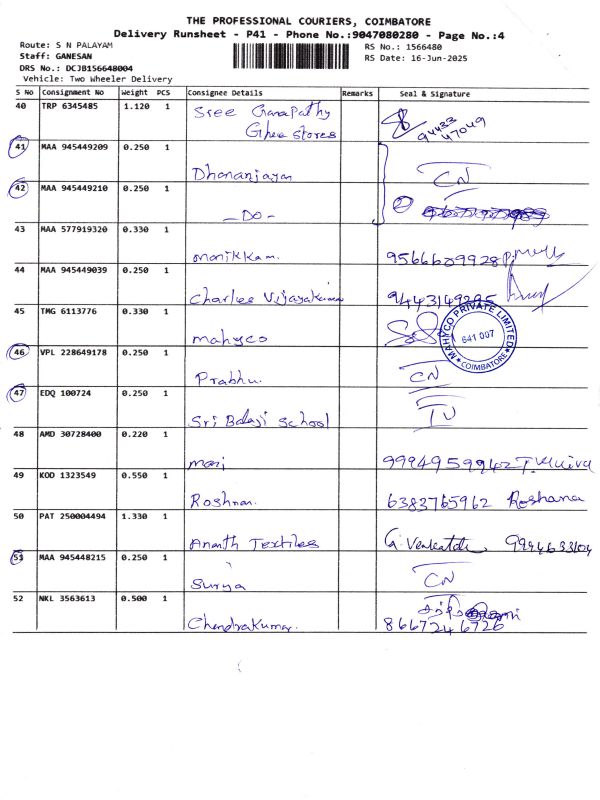 THE PROFESSIONAL COURIERS, COIMBATORE
Delivery Runsheet - P41 - Phone No.:9047080280 - Page No.:4
Route: S N PALAYAM
RS No.: 1566480
Staff: GANESAN
RS Date: 16-Jun-2025
DRS No.: DCJB156648004
Vehicle: Two Wheeler Delivery
S No Consignment No Weight PCS Consignee Details Remarks Seal & Signature
40 TRP 6345485 1.120 1 Sree Ganapathy
Ghee Stores
94433
47049
41 MAA 945449209 0.250 1
Dhananjayan CN
42 MAA 945449210 0.250 1
-Do-
43 MAA 577919320 0.330 1
Manikkam. 9566609928
44 MAA 945449039 0.250 1
Charles Vijayakumar 9443149295
45 TMG 6113776 0.330 1
Mahyco
MAHYCO PRIVATE LIMITED
641 007
COIMBATORE
46 VPL 228649178 0.250 1
Prabhu. CN
47 EDQ 100724 0.250 1
Sri Balaji School
48 AMD 30728400 0.220 1
Mari 9994959942
49 KOD 1323549 0.550 1
Roshnan. 6383765962 Roshana
50 PAT 250004494 1.330 1
Ananth Textiles G. Venkatesh 9994633104
51 MAA 945448215 0.250 1
Surya CN
52 NKL 3563613 0.500 1
Chandrakumar. 8667246726